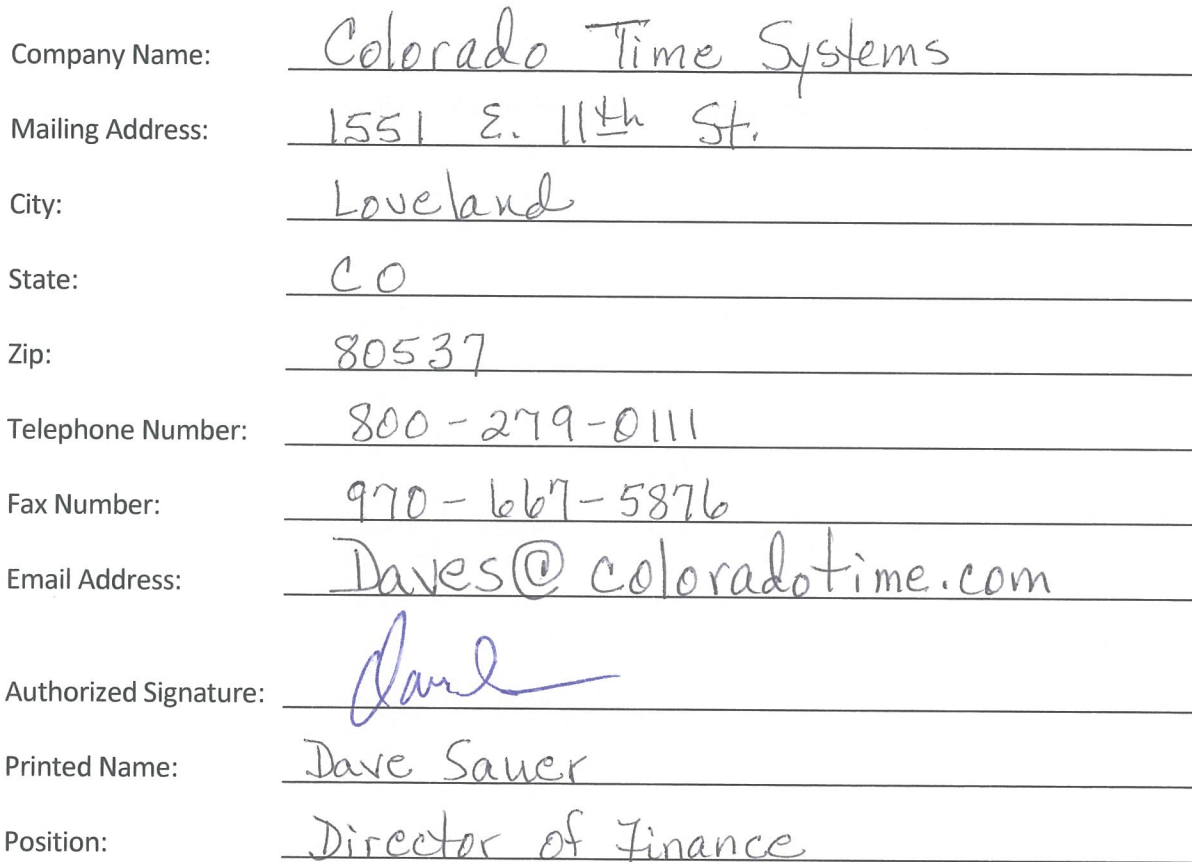 Company Name: Colorado Time Systems
Mailing Address: 1551 E. 11th St.
City: Loveland
State: CO
Zip: 80537
Telephone Number: 800-279-0111
Fax Number: 970-667-5876
Email Address: Daves@coloradotime.com
Authorized Signature:
Printed Name: Dave Sauer
Position: Director of Finance